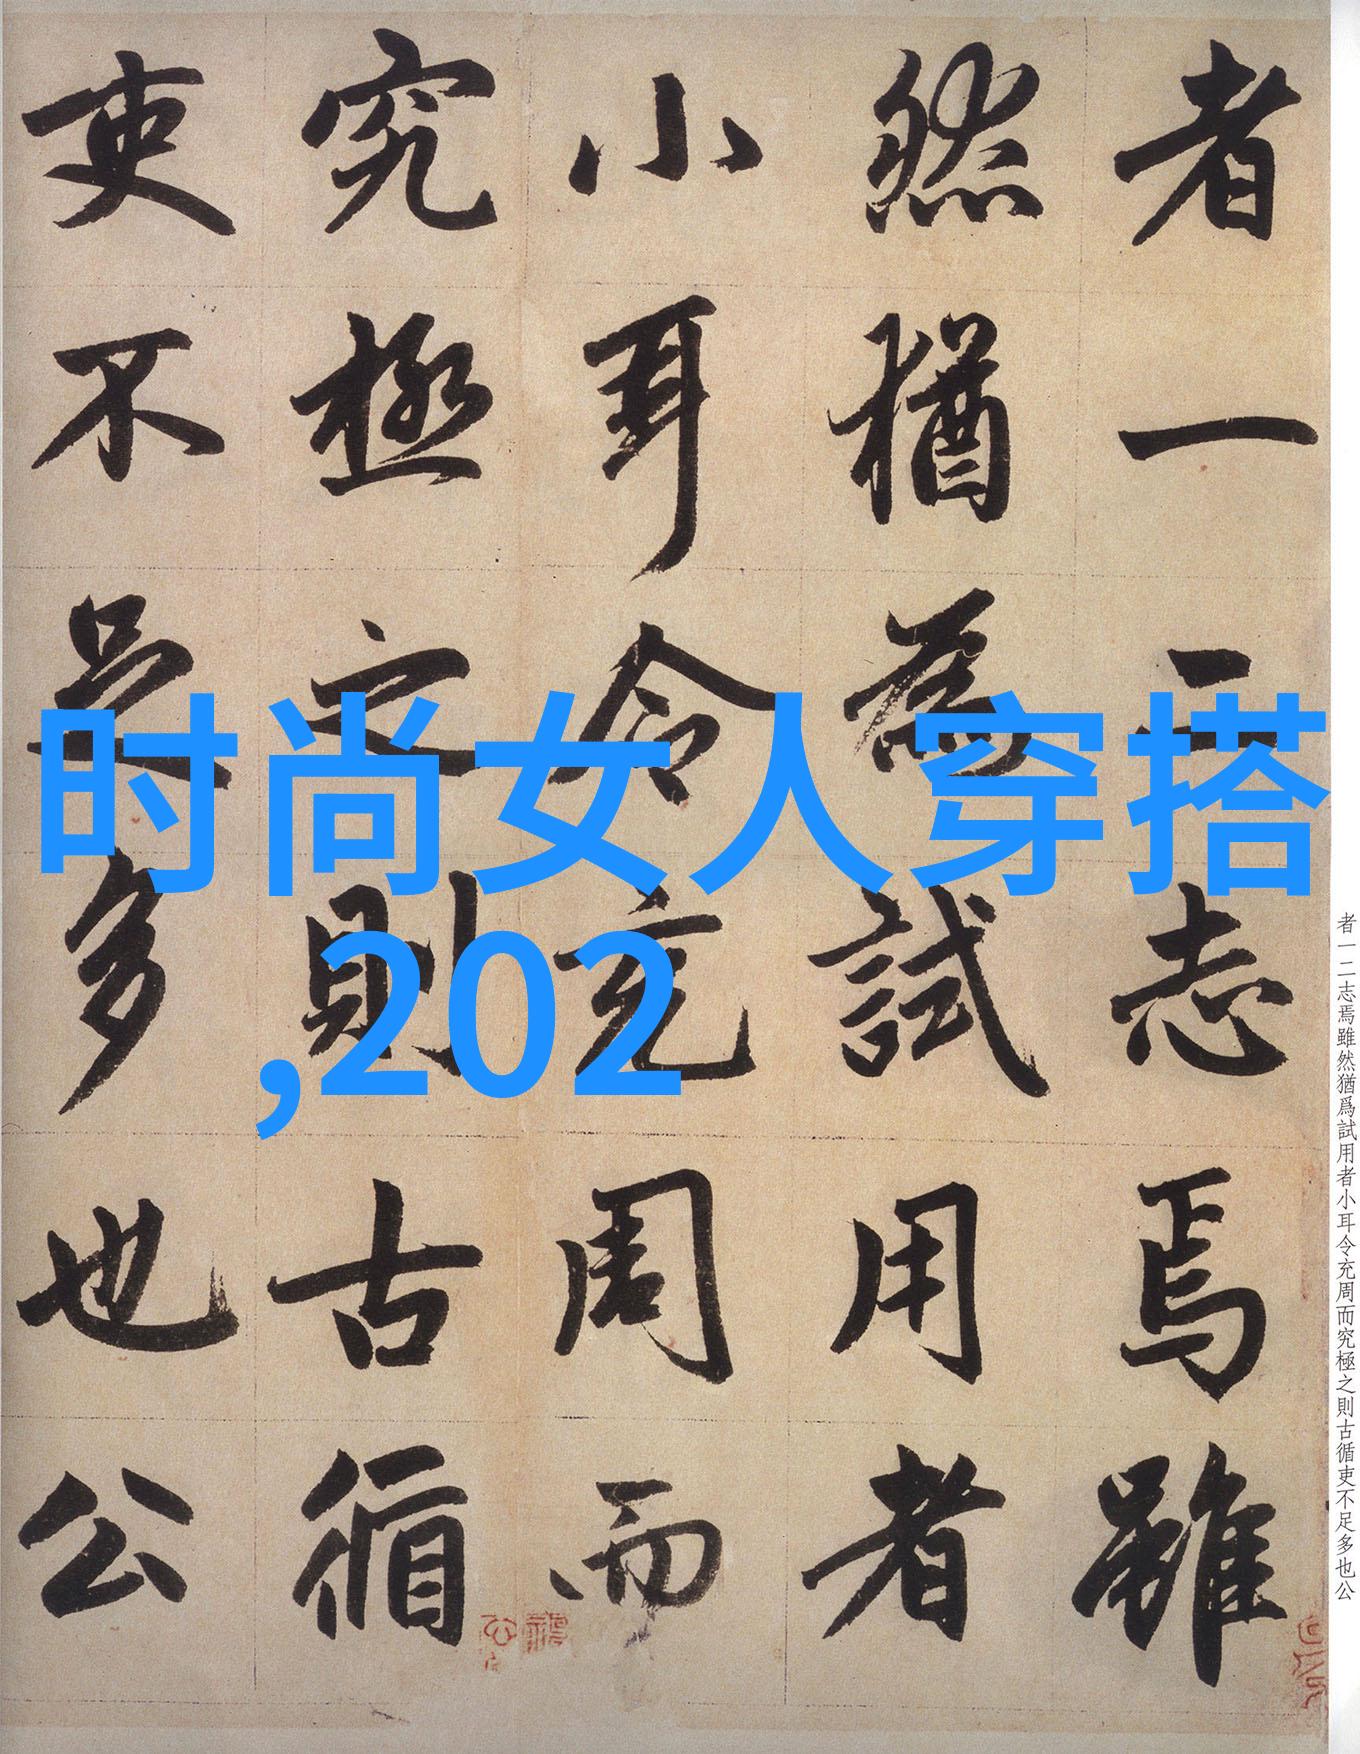 者一二志焉雖
然猶為試用者
小耳令充周而
究極之則古循
吏不足多也公
时尚女人穿搭
,202
者一二志焉雖然猶爲試用者小耳令充周而究極之則古循吏不足多也公